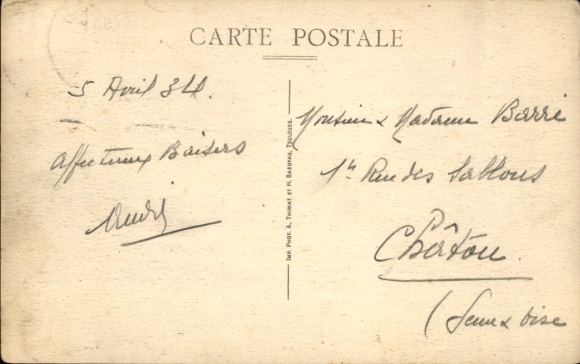 CARTE POSTALE
5 Avril 34.
Affectueux Baisers
André
IMP. PHOT. A. THIRIAT ET H. BASUYAU, TOULOUSE.
Monsieur & Madame Barré
Rue des Sablons
Châtou.
(Seine & Oise